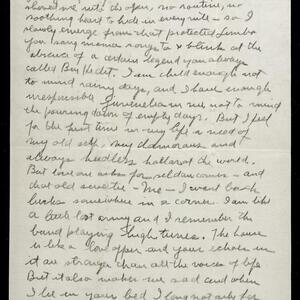 shoved me into the open, no routine, no
soothing hand to hide in every nite - so I
slowly emerge from that protected limbo
you many mama songs to & blink at the
absence of a certain legend you always
called Ben Hecht. I am child enough not
to mind rainy days, and I have enough
irresponsible in me not to mind
the pouring down of empty days. But I feel
for the first time in my life a need of
my old self, my clamorous and
always heedless holla at the world.
But love one asks for seldom comes - and
that old sweetie - Me - I want back
lurks somewhere in a corner. I am like
a lost army and I remember the
band playing & high tunes. The house
is like a love affair and your echoes in
it are stronger than all the voices of life
But it also makes me sad and when
I lie in your bed I long not only for